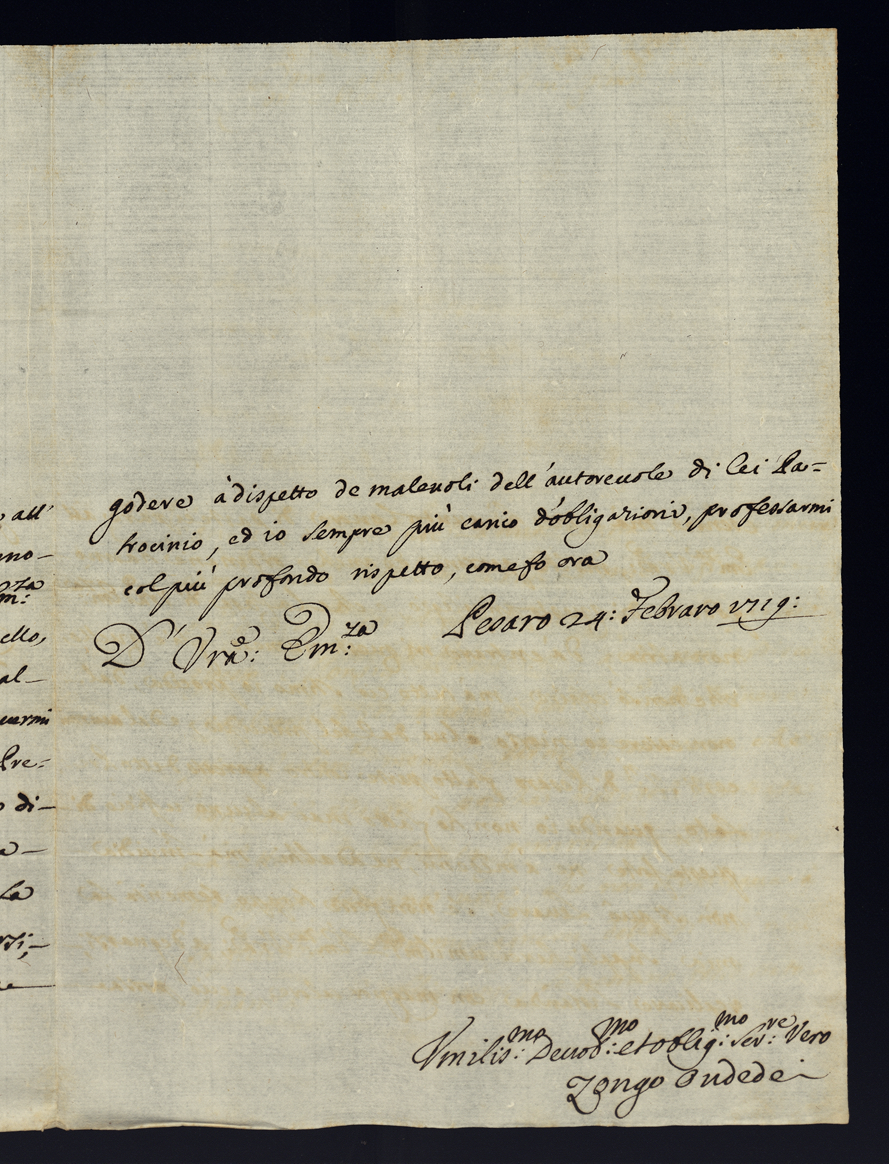 godere à dispetto de malevoli dell'autorevole di Lei Pa=
trocinio, ed io sempre più carico d'obligazioni, professarmi
col più profondo rispetto, come fo ora
D' Vrā: Em:za Pesaro 24: Febraro 1719:
Vmilis:mo Deuot:mo et oblig:mo Ser:re Vero
Zongo Ondedei
all'
no-
m:za
ello,
al-
uermi
Pre-
di-
a-
La